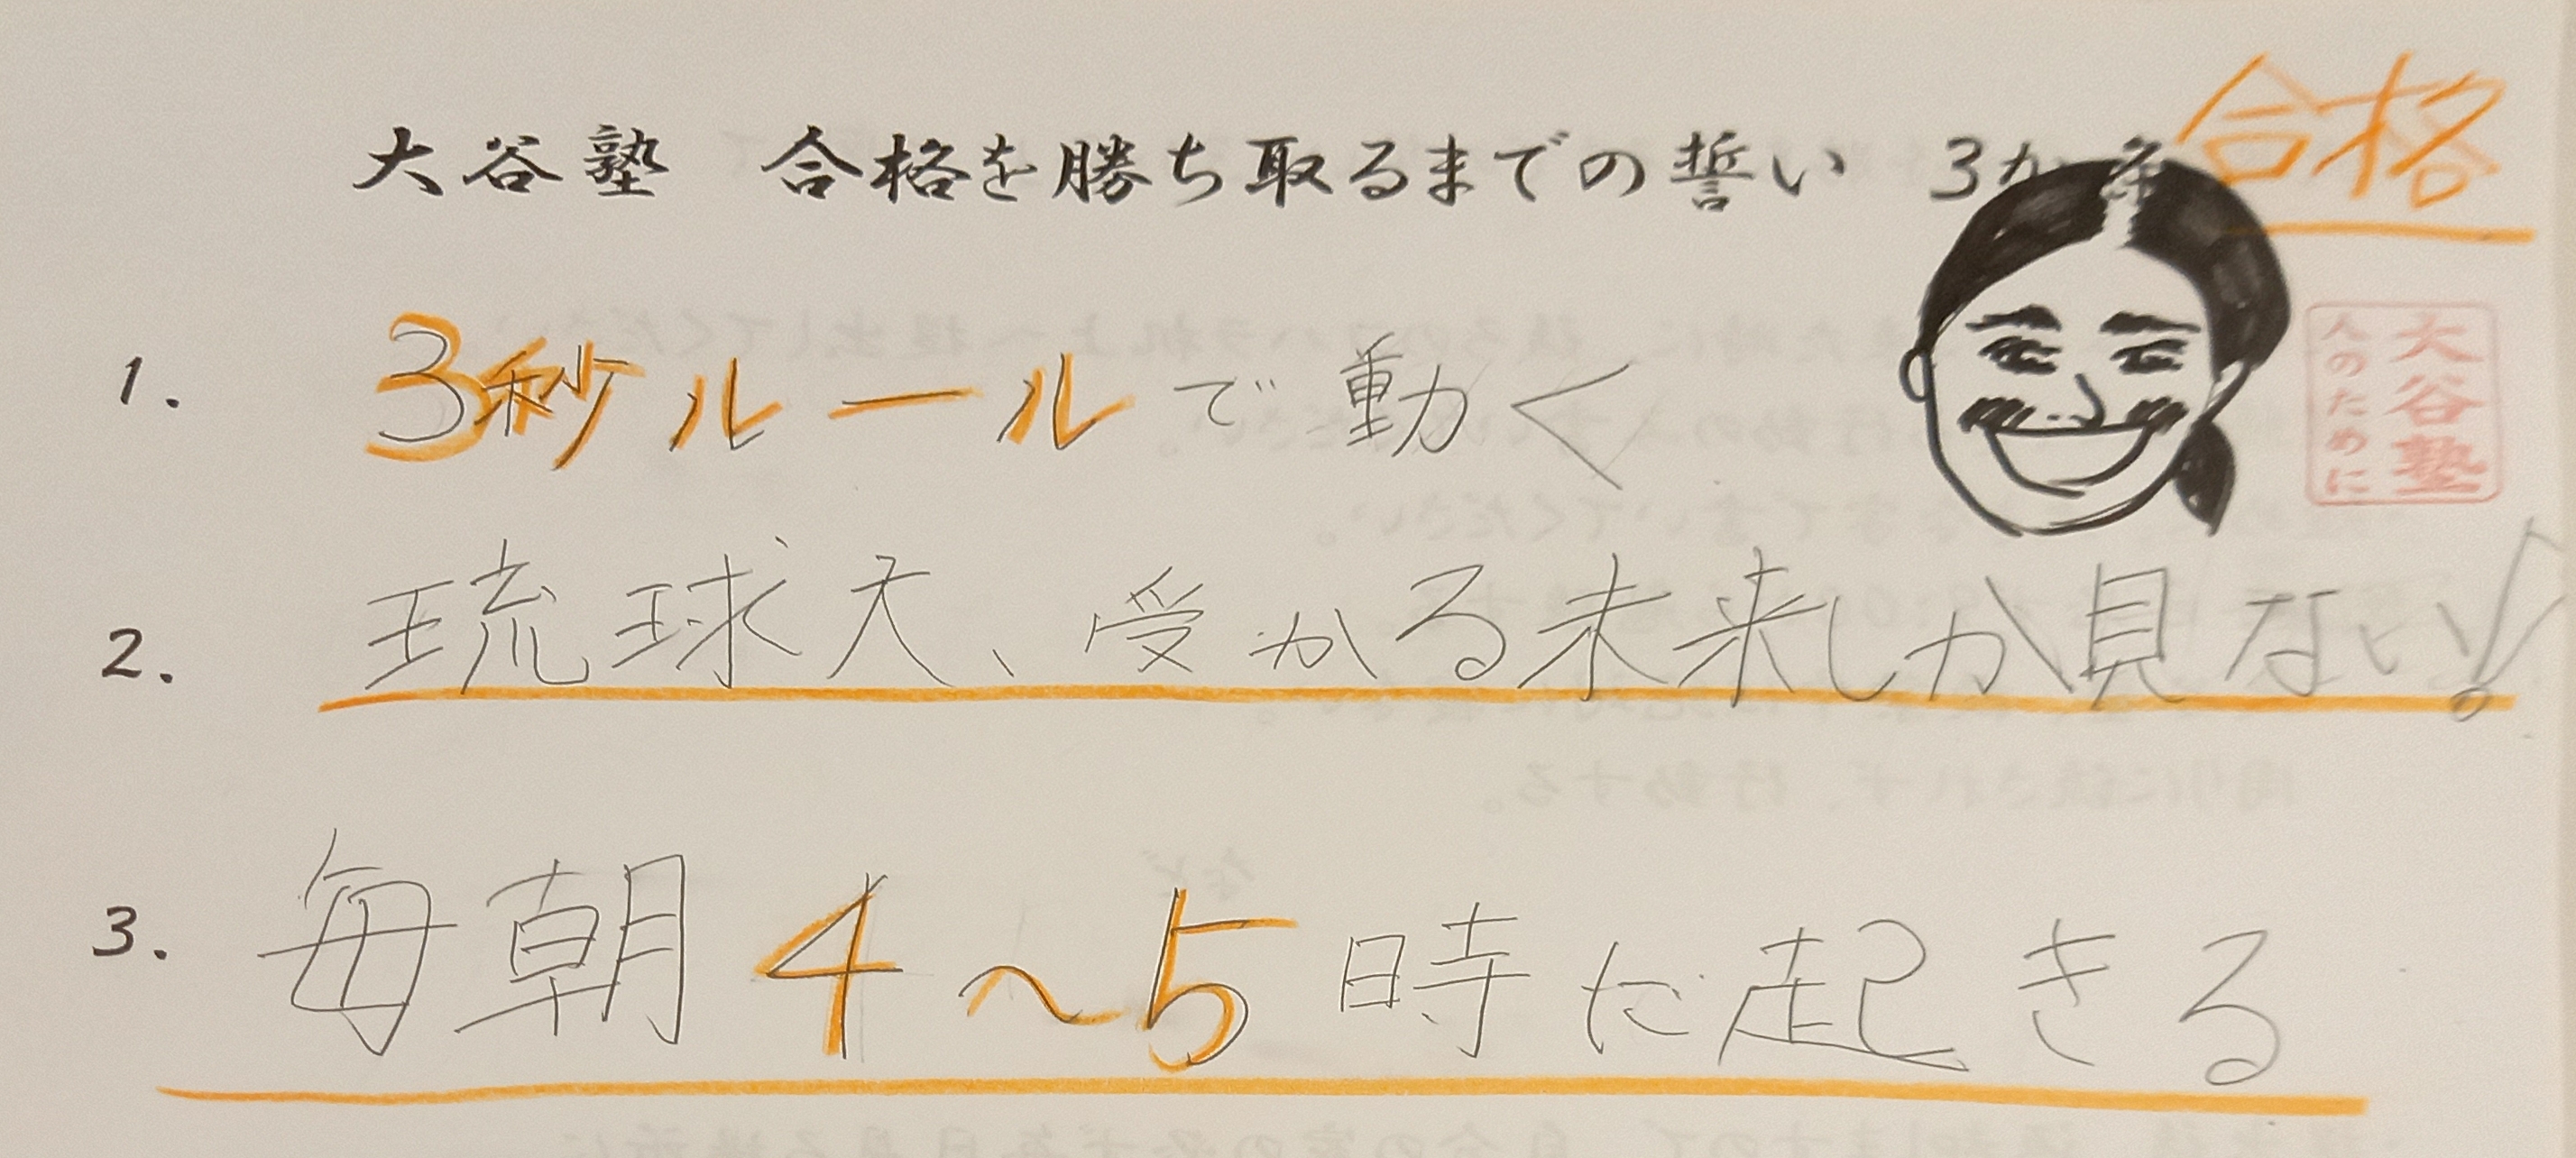 大谷塾 合格を勝ち取るまでの誓い 3か条
合格
大谷塾
人のために
1. 3秒ルールで動く
2. 琉球大、受かる未来しか見ない!
3. 毎朝4~5時に起きる